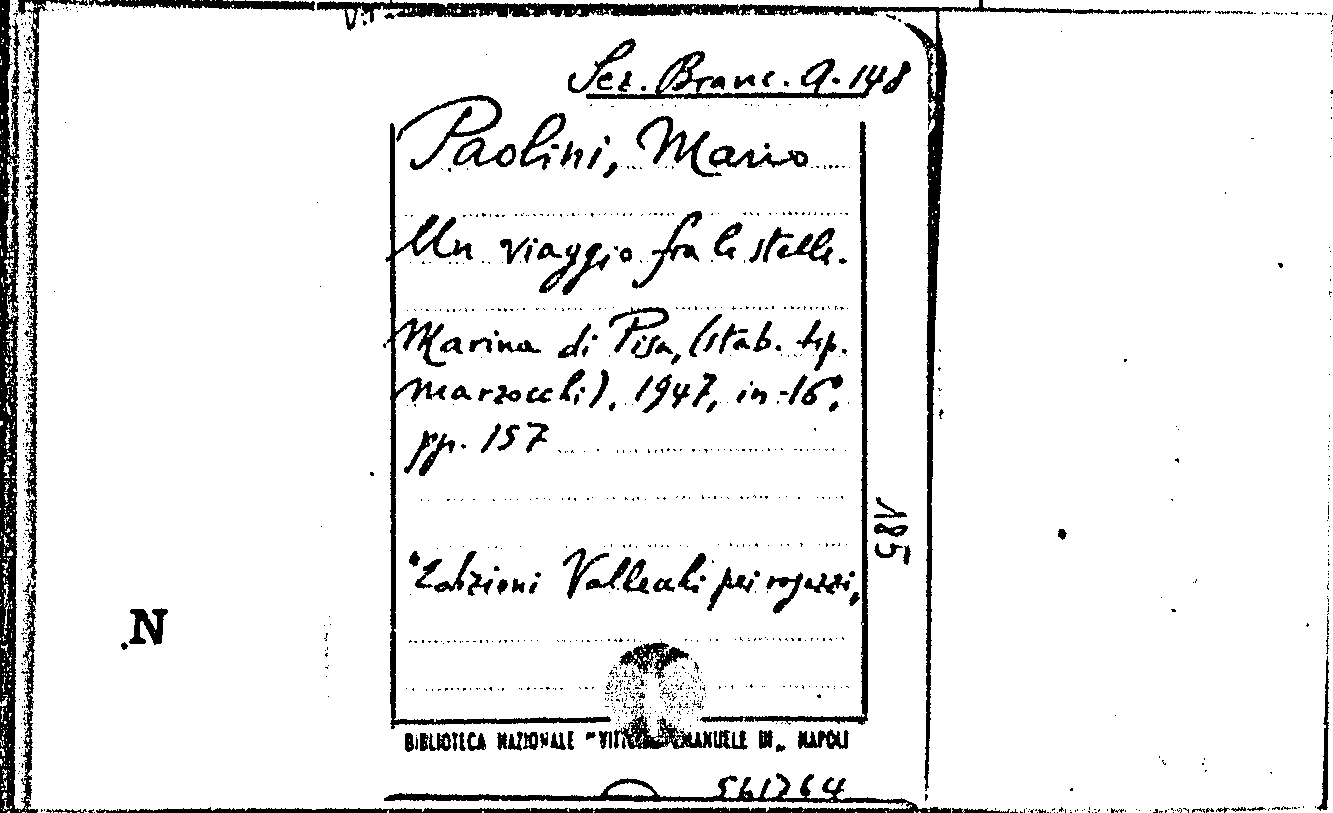 Sez. Branc. A. 148
Paolini, Mario
Un viaggio fra le stelle.
Marina di Pisa, (stab. tip.
Marzocchi), 1947, in-16°,
pp. 157
185
"Edizioni Vallecchi pei ragazzi„
N
BIBLIOTECA NAZIONALE "VITTORIO EMANUELE III„ NAPOLI
561764